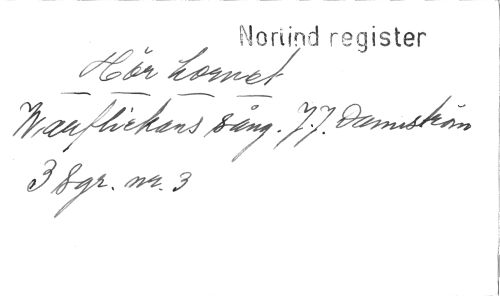 Norlind register
Hör hornet
Wallflickans sång. J.J. Damström
3 Sgr. nr. 3